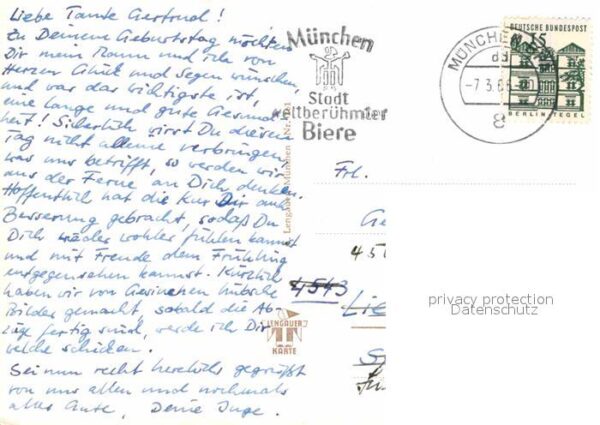 Liebe Tante Gertrud!
Zu Deinem Geburtstag möchten
Dir mein Mann und ich von
Herzen Glück und Segen wünschen,
und was das wichtigste ist,
eine lange und gute Gesund-
heit! Sicherlich wirst Du diesen
Tag nicht alleine verbringen,
was uns betrifft, so werden wir
aus der Ferne an Dich denken.
Hoffentlich hat die Kur Dir auch
Besserung gebracht, sodaß Du
Dich wieder wohler fühlen kannst
und mit Freude dem Frühling
entgegensehen kannst. Kürzlich
haben wir von hübsche
Bilder gemacht, sobald die Ab-
züge fertig sind, werde ich Dir
welche schicken.
Sei nun recht herzlichs gegrüßt
von uns allen und nochmals
alles Gute, Deine Inge.
München
Stadt
weltberühmter
Biere
MÜNCHEN
-7.3.66
8
DEUTSCHE BUNDESPOST
15
BERLIN-TEGEL
Lengauer München
LENGAUER
KARTE
Frl.
Ge
450
4543
Lie
privacy protection
Datenschutz